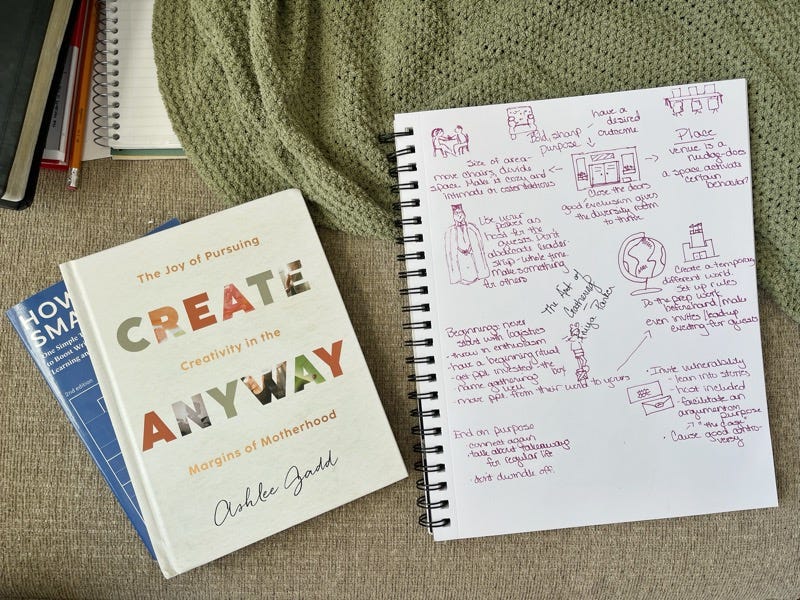 HOW
SMA
One Simple
to Boost Wri
Learning an
2nd edition
The Joy of Pursuing
CREATE
Creativity in the
ANYWAY
Margins of Motherhood
Ashlee Gadd
Bold, sharp
purpose
have a
desired
outcome
Place
venue is a
nudge-does
a space activate
certain
behavior?
Size of area-
move chairs, divide
space. Make it cozy and
intimate or ostentatious
Close the doors
good exclusion gives
the diversity room
to thrive
Use your
power as
host for the
guests. Don't
abdicate leader-
ship - whole time.
Make something
for others
The Art of
Gathering
Priya Parker
Create a temporary
different world.
Set up rules
Do the prep work
beforehand/make
even invites/leadup
exciting for guests
Beginnings: never
start with logistics
throw in enthusiasm
have a beginning ritual
get ppl invested in the
name gatherings
well
move ppl from their world to yours
Invite vulnerability
lean into stories
host included
facilitate an
argument on
purpose
Cause good contro-
versy
End on purpose
connect again
talk about takeaways
for regular life
don't dwindle off.